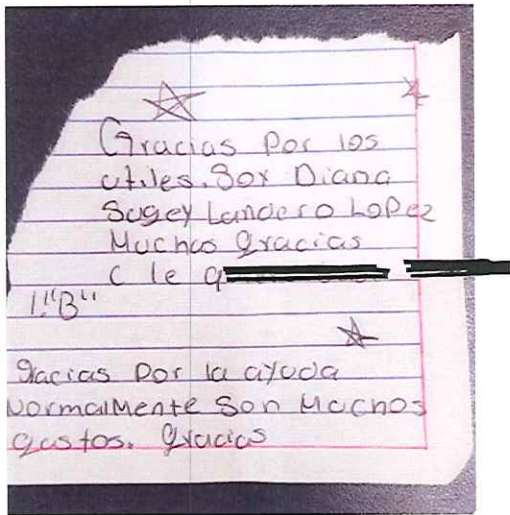 Gracias Por los
utiles. Sor Diana
Sugey Landero LoPez
Muchas gracias
C le
1."B"
gracias Por la ayuda
NormalMente Son Muchos
gastos. gracias